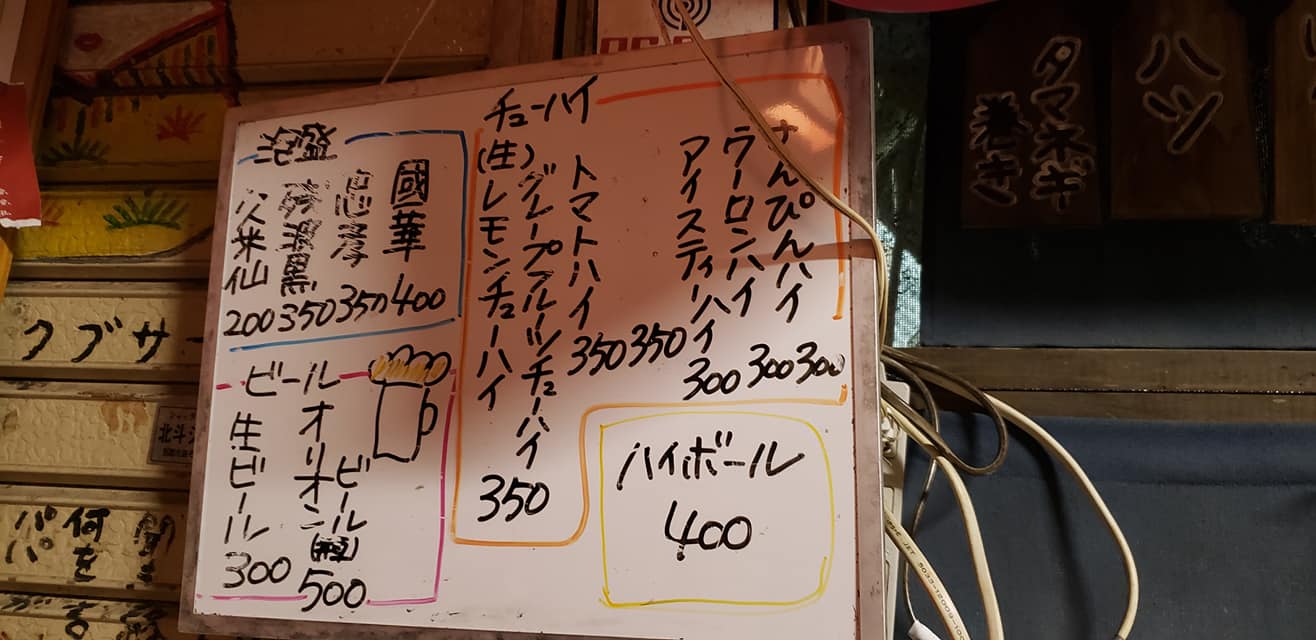 泡盛
國華 400
忠孝 350
砂波黒 350
久米仙 200
ビール
オリオンビール
500
生ビール 300
チューハイ
(生)レモンチューハイ
グレープフルーツチューハイ
350
トマトハイ 350
350
アイスティーハイ 300
ウーロンハイ 300
さんぴんハイ 300
ハイボール
400
タマネギ
巻き
ハツ
クブサー
何を
パパ